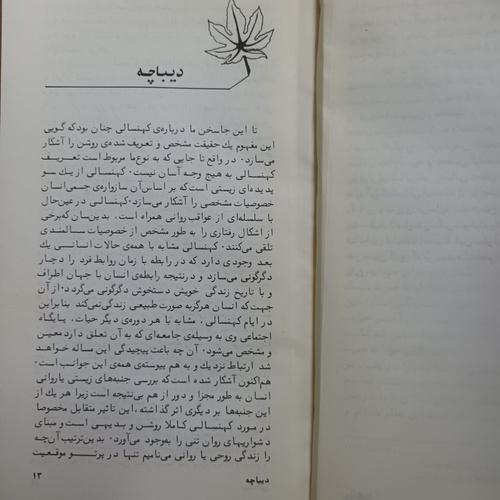 دیباچه
تا این جاسخن ما دربارهٔ کهنسالی چنان بودکه گویی
این مفهوم یك حقیقت مشخص و تعریف شده‌ی روشن را آشکار
می‌سازد. در واقع تا جایی که به نوع‌ما مربوط است تعریف
کهنسالی به هیچ وجه آسان نیست. کهنسالی از یك سو
پدیده‌ای زیستی است‌که بر اساس‌آن سازواره‌ی جسمی‌انسان
خصوصیات مشخصی را آشکار می‌سازد. کهنسالی در عین‌حال
با سلسله‌ای از عواقب روانی همراه است. بدین‌سان که‌برخی
از اشکال رفتاری را به طور مشخص از خصوصیات سالمندی
تلقی می‌کنند. کهنسالی مشابه با همه‌ی حالات انسانی یك
بعد وجودی دارد که در رابطه با زمان روابط فرد را دچار
دگرگونی می‌سازد و درنتیجه رابطه‌ی انسان با جهان اطراف
و با تاریخ زندگی خویش دستخوش دگرگونی می‌گردد. از آن
جهت‌که انسان هرگزبه صورت طبیعی زندگی‌نمی‌کند بنابراین
در ایام کهنسالی، مشابه با هر دوره‌ی دیگر حیات، پایگاه
اجتماعی وی به وسیله‌ی جامعه‌ای که به آن تعلق دارد معین
و مشخص می‌شود. آن چه باعث پیچیدگی این مساله خواهد
شد ارتباط نزدیك و به هم پیوسته‌ی همه‌ی این جوانب است.
هم‌اکنون آشکار شده است‌که بررسی جنبه‌های زیستی یاروانی
انسان به طور مجزا و دور از هم بی‌نتیجه است زیرا هر یك از
این جنبه‌ها بر دیگری اثر گذاشته، این تاثیر متقابل مخصوصا
در مورد کهنسالی کاملا روشن و بدیهی است و مبنای
دشواریهای روان تنی را به‌وجود می‌آورد. بدین‌ترتیب آن‌چه
را زندگی روحی یا روانی می‌نامیم تنها در پرتو موقعیت
دیباچه ۱۳